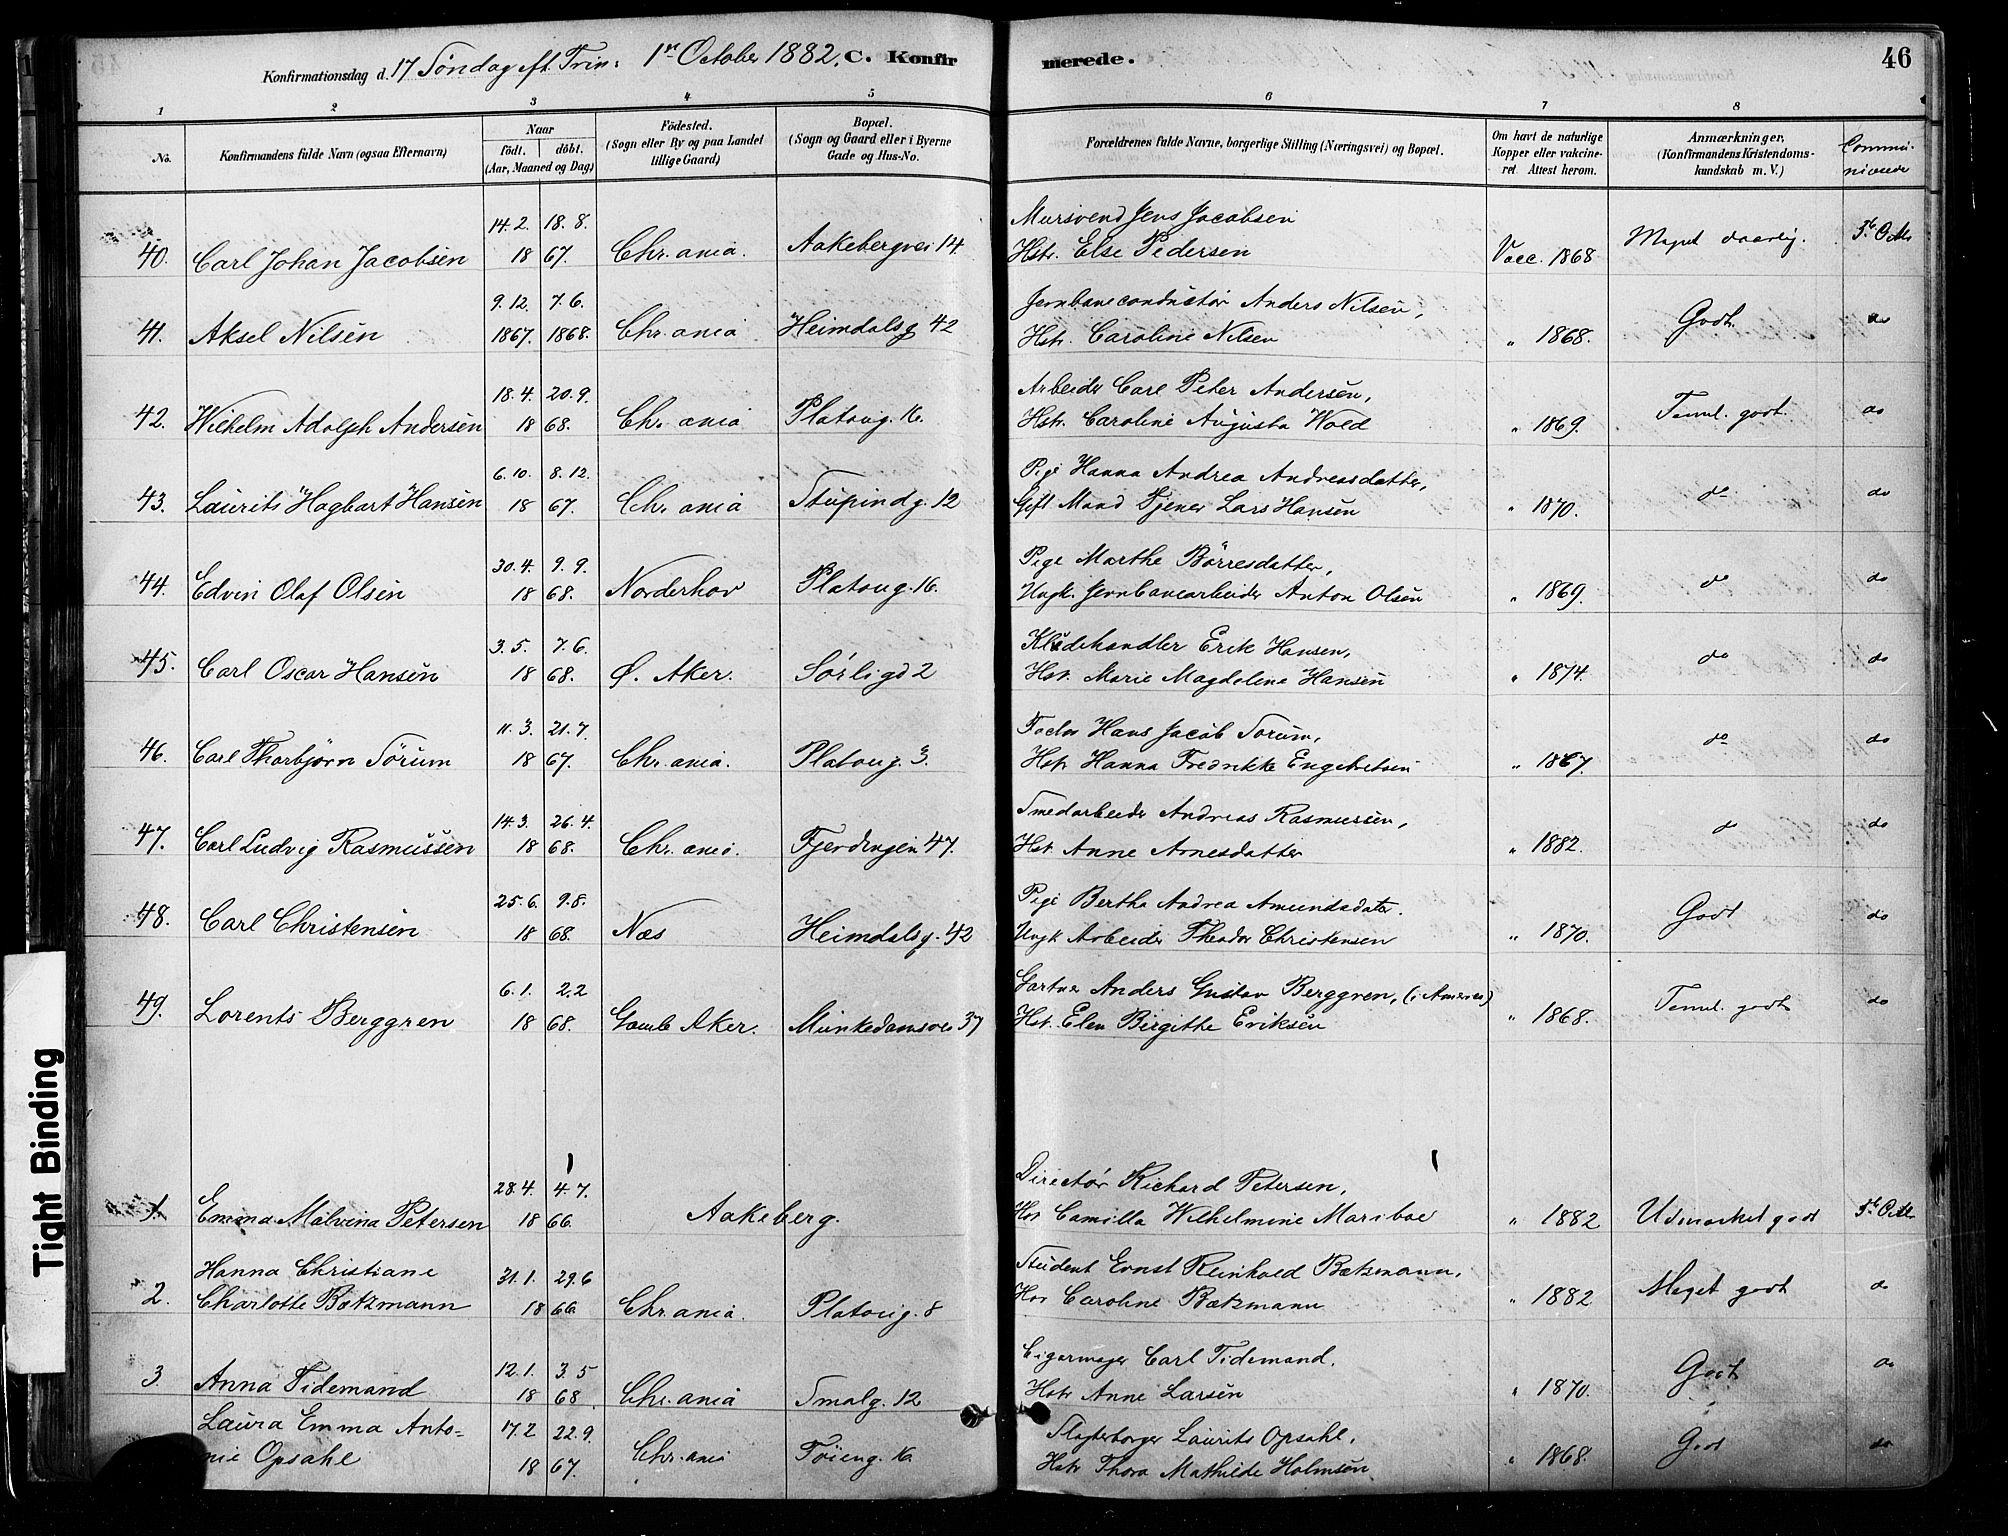 Konfirmationsdag d. 17 Söndag eft. Trin: 1ste October 1882. C. Konfirmerede. 46
1 2 3 4 5 6 7 8
No. Konfirmandens fulde Navn (ogsaa Efternavn) Naar födt. döbt. (Aar, Maaned og Dag) Födested. (Sogn eller By og paa Landet tillige Gaard) Bopæl. (Sogn og Gaard eller i Byerne Gade og Hus-No. Forældrenes fulde Navne, borgerlige Stilling (Næringsvei) og Bopæl. Om havt de naturlige Kopper eller vakcineret. Attest herom. Anmærkninger, (Konfirmandens Kristendomskundskab m. V.) Communicerede
14.2. 18.8. Mursvend Jens Jacobsen
40. Carl Johan Jacobsen 18 67. Chr.ania. Aakebergvei 14. Hstr. Else Pedersen Vacc. 1868 Meget daarlig. 3d Octbr
9.12. 7.6. Jernbaneconductør Anders Nilsen,
41. Aksel Nilsen 1867. 1868. Chr.ania Heimdalsg 42 Hstr. Caroline Nilsen " 1868. Godt. do
18.4. 20.9. Arbeider Carl Peter Andersen,
42. Wilhelm Adolph Andersen 18 68. Chr.ania Platoug. 16. Hstr. Caroline Augusta Wold " 1869. Teml. godt. do
6.10. 8.12. Pige Hanna Andrea Andreasdatter,
43. Laurits Hagbart Hansen 18 67. Chr.ania Stupindg. 12 Gift Mand Tjener Lars Hansen " 1870. do do
30.4. 9.9. Pige Marthe Börresdatter,
44. Edvin Olaf Olsen 18 68. Norderhov Platoug. 16. Ungk. Jernbanearbeider Anton Olsen " 1869. do do
3.5. 7.6. Kludehandler Erik Hansen,
45. Carl Oscar Hansen 18 68. Ø. Aker. Sörligd 2 Hst. Marie Magdalene Hansen " 1874. do do
11.3. 21.7. Hans Jacob Sorum,
46. Carl Thorbjørn Sörum 18 67. Chr.ania. Platoug. 3. Hstr Hanna Fredrikke Engebretsen " 1867. do do
14.3. 26.4. Smedarbeider Andreas Rasmussen,
47. Carl Ludvig Rasmussen 18 68. Chr.ania. Fjerdingen 47. Hst. Anne Arnesdatter " 1882. do do
25.6. 9.8. Pige Bertha Andrea Amundsdatr.
48. Carl Christensen 18 68. Næs Heimdalsg. 42 Ungk Arbeider Theodor Christensen " 1870. Godt do
6.1. 2.2 Gartner Anders Gustav Berggren, (i Amerca)
49. Lorents Berggren 18 68. Gamle Aker. Munkedamsvei 37 Hst. Elen Birgithe Eriksen " 1868. Teml. godt do
28.4. 4.7. Directör Richard Petersen,
1. Emma Malvina Petersen 18 66. Aakeberg. Hor Camilla Wilhelmine Mariboe " 1882 Udmærket godt 3d Octbr
Hanna Christiane 31.1. 29.6 Student Ernst Reinhold Bætzmann,
2. Charlotte Bætzmann 18 66. Chr.ania. Platoug. 8 Hor Caroline Bætzmann " 1882 Meget godt do
12.1. 3.5 Cigarmager Carl Tidemand.
3. Anna Tidemand 18 68. Chr.ania Smalg. 12 Hstr Anne Larsen " 1870. Godt do
Laura Emma Anto- 17.2 22.9. Slagterborger Laurits Opsahl,
nie Opsahl 18 67. Chr.ania Töieng. 16 Hstr Thora Mathilde Holmsen " 1868. Godt do
Tight Binding